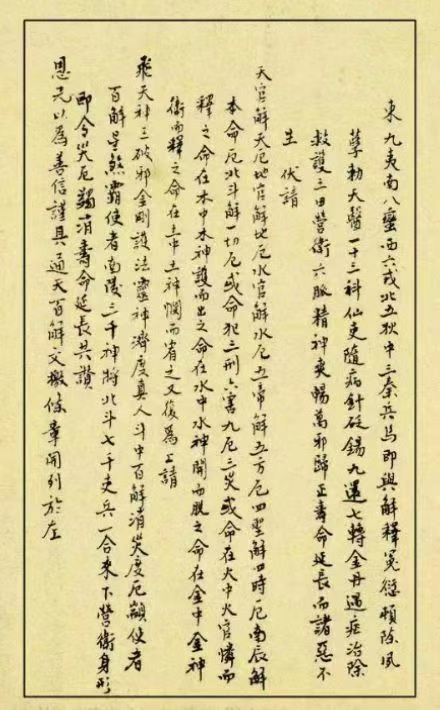 東九夷南八蠻西六戎北五狄中三秦兵馬即與解釋冤愆頓除夙
孽勅天醫一十三科仙吏隨病針砭錫九還七轉金丹遇症治除
救護三田營衛六脈精神爽暢萬邪歸正壽命延長而諸惡不
生 伏請
天官解天厄地官解地厄水官解水厄五帝解五方厄四聖解四時厄南辰解
本命厄北斗解一切厄或命犯三刑六害九厄三災或命在火中火官憐而
釋之命在木中木神護而出之命在水中水神開而脫之命在金中金神
衛而釋之命在土中土神憫而宥之又復為上請
飛天神王破邪金剛護法靈神濟度真人斗中百解消災度厄顯使者
百解星煞霸使者南陵三千神將北斗七千吏兵一合來下營衛身形
即令災厄蠲消壽命延長共讚
恩光以為善信謹具通天百解文檄條章開列於左